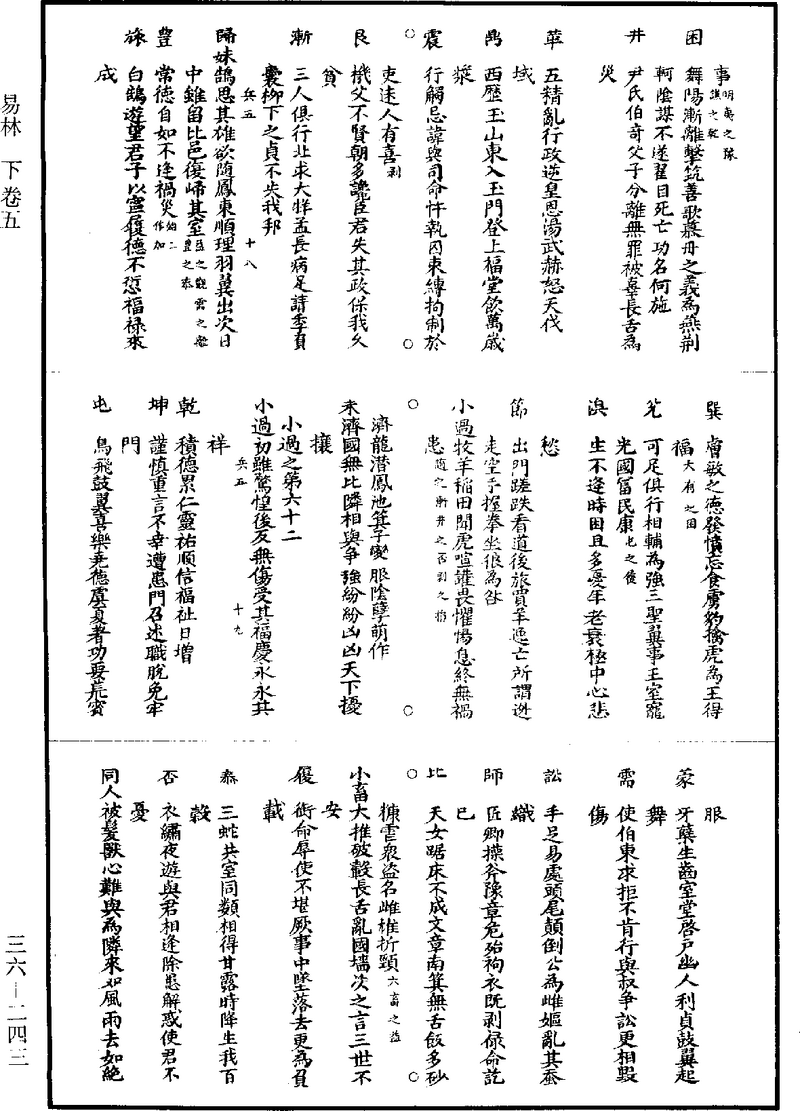 事明夷之豫謙之乾
困　舞陽漸離擊筑善歌慕丹之義為燕荆
軻陰謀不遂䀹目死亡功名何施
井　尹氏伯奇父子分離無罪被辜長舌為
災
萃　五精亂行政逆皇恩湯武赫怒天伐
域
鼎　西歷玉山東入玉門登上福堂飲萬歲
漿
震　行觸忌諱與司命忤執囚束縛拘制於
吏迷人有喜剥
艮　機父不賢朝多讒臣君失其政保我久
貧
漸　三人俱行北求大牂孟長病足請季負
囊柳下之貞不失我邦
兵五　十八
歸妹鵠思其雄欲隨鳳東順理羽翼出次日
中雖留比邑復歸其室
豐　常德自如不逢禍災
旅　白鶴遊望君子以寧履德不愆福祿來
成
巽　會敏之德發憤忘食虜豹擒虎為王得
福大有之困
兌　可足俱行相輔為強三聖翼事王室寵
光國富民康屯之復
渙　生不逢時困且多憂年老衰極中心悲
愁
節　出門蹉跌看道後旅買羊逸亡所謂
走空手握拳坐狼為咎
小過牧羊稻田聞虎喧讙畏懼惕息終無禍
患
濟龍潛鳳池箕子變服陰孽萌作
未濟國無比隣相與爭強紛紛凶凶天下擾
攘
小過之第六十二
兵五　十九
小過初雖驚惶後反無傷受其福慶永永其
祥
乾　積德累仁靈祐順信福祉日增
坤　謹慎重言不幸遭患門召述職脫免牢
門
屯　鳥飛鼓翼喜樂堯德虞夏著功要荒賓
服
蒙　牙蘖生齒室堂啓户幽人利貞鼓翼起
舞
需　使伯東求拒不肯行與叔爭訟更相毀
傷
訟　手足易處頭尾顛倒公為雌嫗亂其蚕
織
師　匠卿操斧豫章危殆袍衣既剥祿命訖
已
比　天女踞床不成文章南箕無舌飯多砂
糠虐衆盜名雌雄折頸六畜之益
小畜大椎破轂長舌亂國墻茨之言三世不
安
履　銜命辱使不堪厥事中墜落去更為負
載
泰　三蛇共室同類相得甘露時降生我百
穀
否　衣繡夜遊與君相逢除患解惑使君不
憂
同人被髮獸心難與為隣來如風雨去如絶
易林　下卷五
三六—二四三